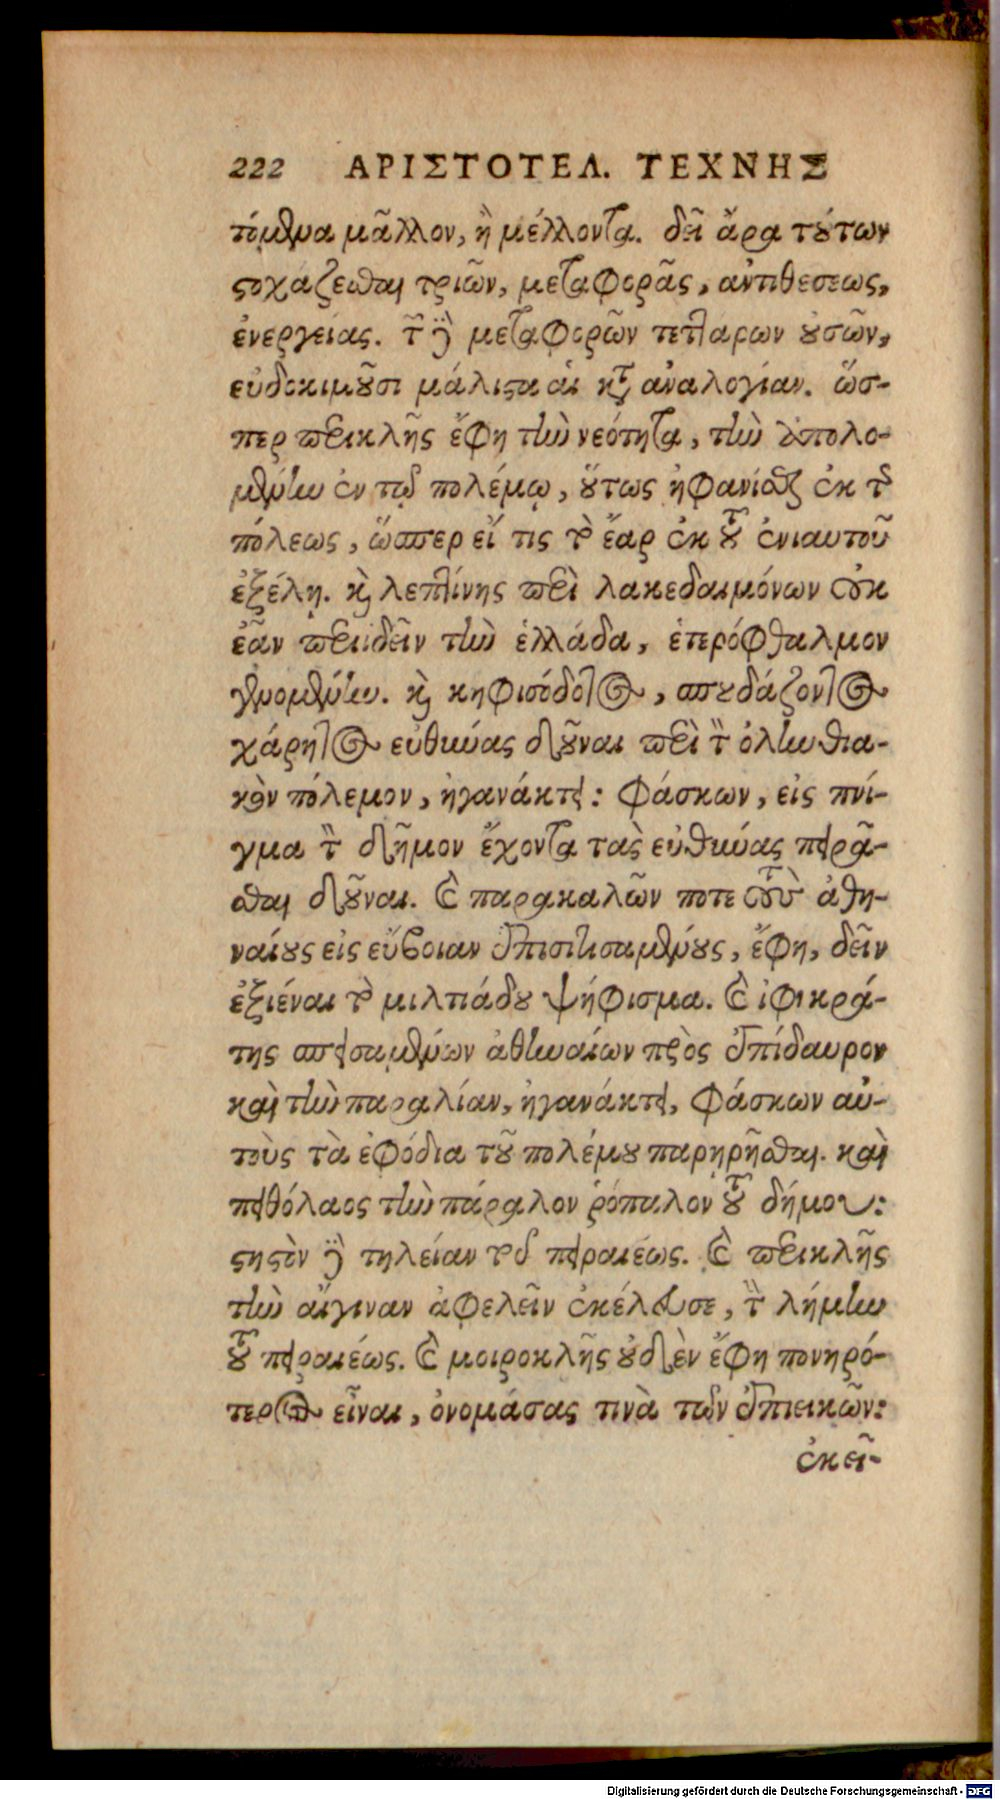 222 ΑΡΙΣΤΟΤΕΛ. ΤΕΧΝΗΣ
τόμενα μᾶλλον, ἢ μέλλοντα. δεῖ ἄρα τούτων
στοχάζεσθαι τριῶν, μεταφορᾶς, ἀντιθέσεως,
ἐνεργείας. τῶν δὲ μεταφορῶν τεττάρων οὐσῶν,
εὐδοκιμοῦσι μάλιστα αἱ κατ' ἀναλογίαν. ὥσ-
περ περικλῆς ἔφη τὴν νεότητα, τὴν ἀπολο-
μένην ἐν τῷ πολέμῳ, οὕτως ἠφανίσθαι ἐκ τῆς
πόλεως, ὥσπερ εἴ τις τὸ ἔαρ ἐκ τοῦ ἐνιαυτοῦ
ἐξέλῃ. καὶ λεπτίνης περὶ λακεδαιμόνων οὐκ
ἐᾶν περιιδεῖν τὴν ἑλλάδα, ἑτερόφθαλμον
γενομένην. καὶ κηφισόδοτος, σπουδάζοντος
χάρητος εὐθύνας δοῦναι περὶ τὸν ὀλυνθια-
κὸν πόλεμον, ἠγανάκτει: φάσκων, εἰς πνί-
γμα τὸν δῆμον ἔχοντα τὰς εὐθύνας πειρᾶ-
σθαι δοῦναι. καὶ παρακαλῶν ποτε τοὺς ἀθη-
ναίους εἰς εὔβοιαν ἐπισιτισαμένους, ἔφη, δεῖν
ἐξιέναι τὸ μιλτιάδου ψήφισμα. καὶ ἰφικρά-
της σπεισαμένων ἀθηναίων πρὸς ἐπίδαυρον
καὶ τὴν παραλίαν, ἠγανάκτει, φάσκων αὐ-
τοὺς τὰ ἐφόδια τοῦ πολέμου παρῃρῆσθαι. καὶ
πειθόλαος τὴν πάραλον ῥόπαλον τοῦ δήμου:
σηστὸν δὲ τηλείαν τοῦ πειραιέως. καὶ περικλῆς
τὴν αἴγιναν ἀφελεῖν ἐκέλευσε, τὴν λήμην
τοῦ πειραιέως. καὶ μοιροκλῆς οὐδὲν ἔφη πονηρό-
τερος εἶναι, ὀνομάσας τινὰ τῶν ἐπιεικῶν:
ἐκεῖ-
Digitalisierung gefördert durch die Deutsche Forschungsgemeinschaft - DFG